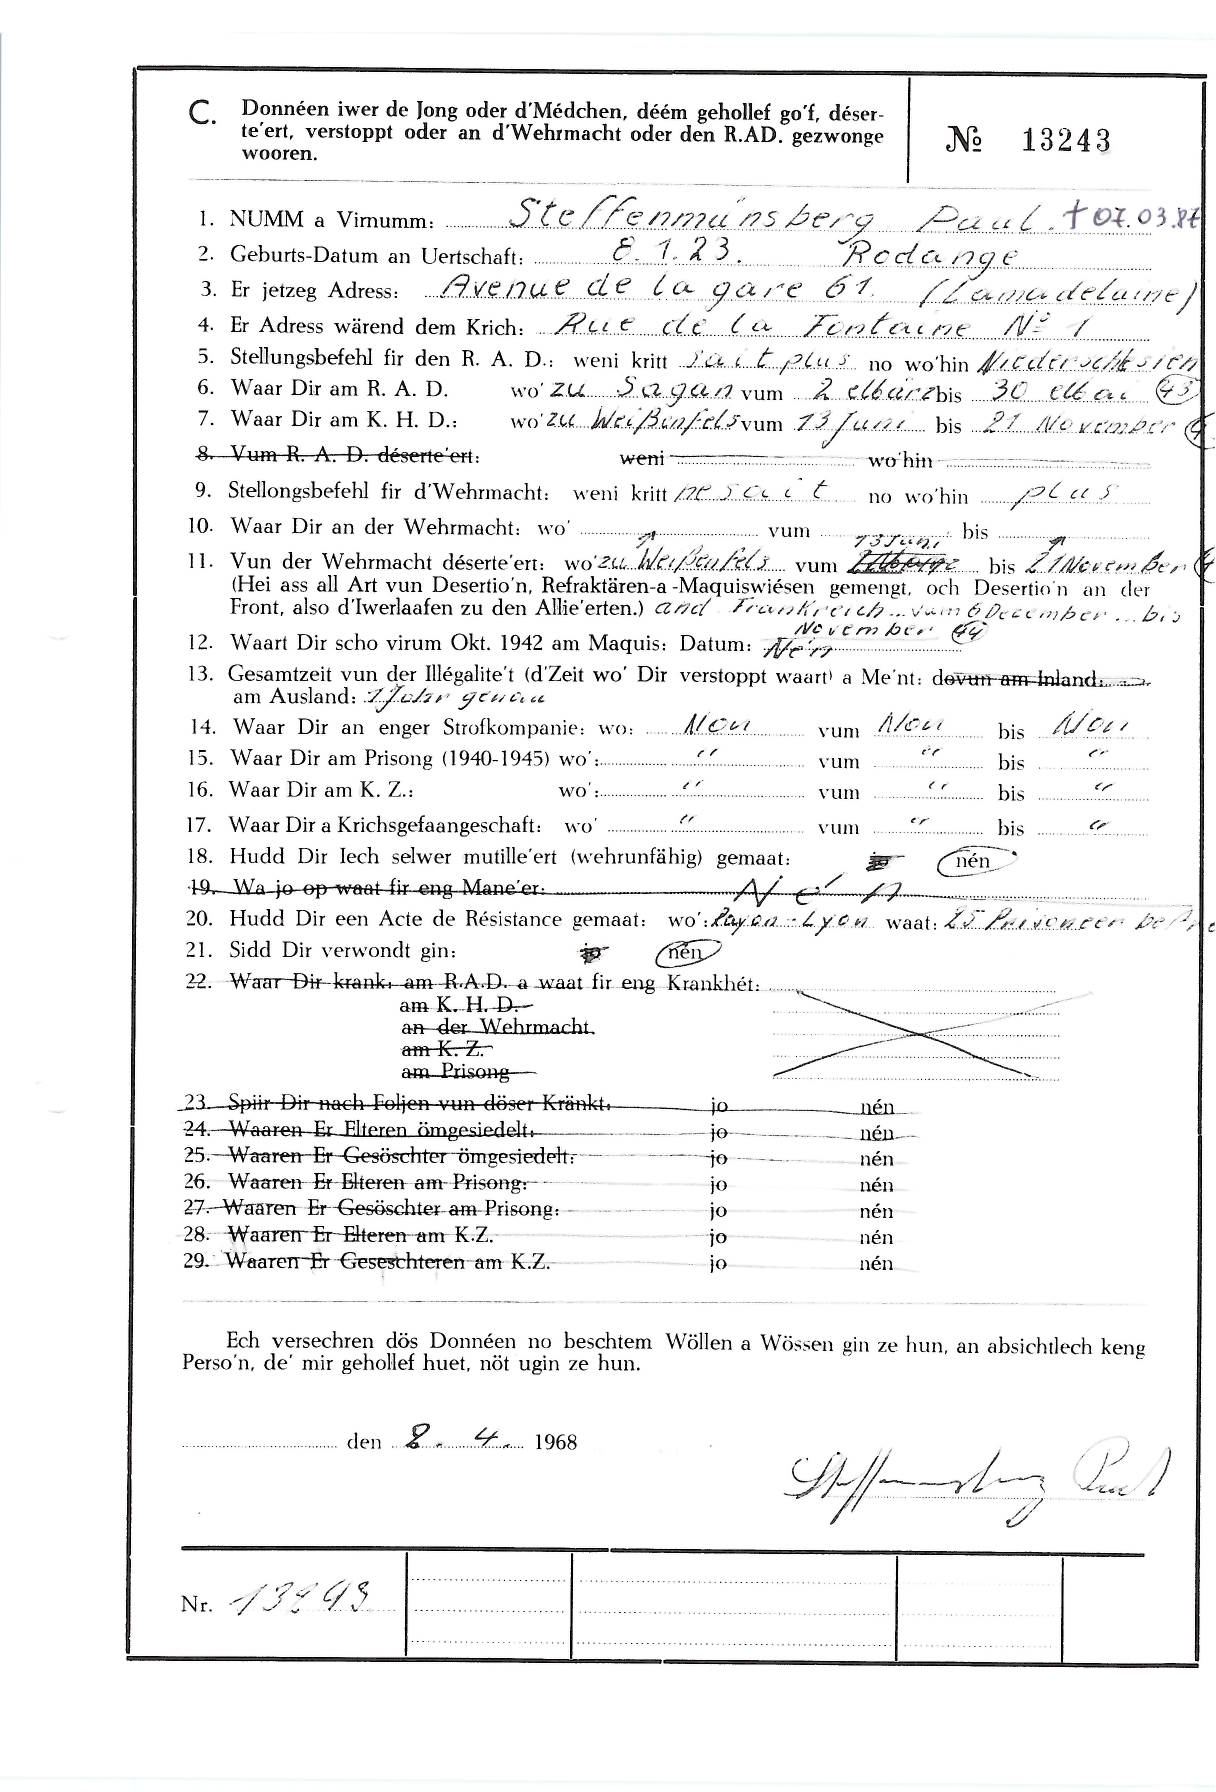 C. Donnéen iwer de Jong oder d'Médchen, déém gehollef go'f, déser-
te'ert, verstoppt oder an d'Wehrmacht oder den R.AD. gezwonge
wooren.
№ 13243
1. NUMM a Virnumm: Steffenmünsberg Paul. † 07.03.87
2. Geburts-Datum an Uertschaft: 8.1.23. Rodange
3. Er jetzeg Adress: Avenue de la gare 61. (Lamadelaine)
4. Er Adress wärend dem Krich: Rue de la Fontaine Nº 1
5. Stellungsbefehl fir den R. A. D.: weni kritt sait plus no wo'hin Niederschlesien
6. Waar Dir am R. A. D. wo' zu Sagan vum 2 März bis 30 Mai 43
7. Waar Dir am K. H. D.: wo' zu Weißenfels vum 13 Juni bis 21 November
8. Vum R. A. D. déserte'ert: weni wo'hin
9. Stellongsbefehl fir d'Wehrmacht: weni kritt ne sait no wo'hin plus
10. Waar Dir an der Wehrmacht: wo' vum bis
13 Juni
11. Vun der Wehrmacht déserte'ert: wo' zu Weißenfels vum bis 21 November
(Hei ass all Art vun Desertio'n, Refraktären-a -Maquiswiésen gemengt, och Desertio'n an der
Front, also d'Iwerlaafen zu den Allie'erten.) and Frankreich vum 6 December bis
November 44
12. Waart Dir scho virum Okt. 1942 am Maquis: Datum: Ne'n
13. Gesamtzeit vun der Illégalite't (d'Zeit wo' Dir verstoppt waart) a Me'nt: dovun am Inland:
am Ausland: 1 Johr genau
14. Waar Dir an enger Strofkompanie: wo: Non vum Non bis Non
15. Waar Dir am Prisong (1940-1945) wo': " vum " bis "
16. Waar Dir am K. Z.: wo': " vum " bis "
17. Waar Dir a Krichsgefaangeschaft: wo' " vum " bis "
18. Hudd Dir Iech selwer mutille'ert (wehrunfähig) gemaat: jo nén
19. Wa jo op waat fir eng Mane'er: Ne'n
20. Hudd Dir een Acte de Résistance gemaat: wo': Lyon waat: 25 Prisoneer
21. Sidd Dir verwondt gin: jo nén
22. Waar Dir krank: am R.A.D. a waat fir eng Krankhét:
am K. H. D.
an der Wehrmacht
am K. Z.
am Prisong
23. Spiir Dir nach Foljen vun döser Kränkt: jo nén
24. Waaren Er Elteren ömgesiedelt: jo nén
25. Waaren Er Gesöschter ömgesiedelt: jo nén
26. Waaren Er Elteren am Prisong: jo nén
27. Waaren Er Gesöschter am Prisong: jo nén
28. Waaren Er Elteren am K.Z. jo nén
29. Waaren Er Geseschteren am K.Z. jo nén
Ech versechren dös Donnéen no beschtem Wöllen a Wössen gin ze hun, an absichtlech keng
Perso'n, de' mir gehollef huet, nöt ugin ze hun.
den 2. 4. 1968
Steffenmünsberg Paul
Nr. 13243